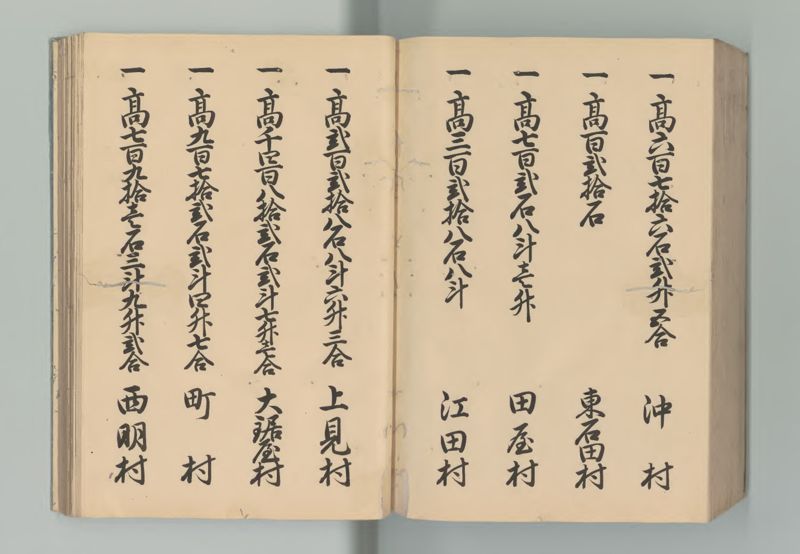 一高六百七拾六石弐升五合 沖村
一高百弐拾石 東石田村
一高七百弐石八斗壱升 田屋村
一高三百弐拾八石八斗 江田村
一高弐百弐拾八石八斗六升三合 上見村
一高千四百八拾弐石弐斗七升壱合 大鋸屋村
一高九百七拾弐石弐斗四升七合 町村
一高七百九拾壱石三斗九升弐合 西明村